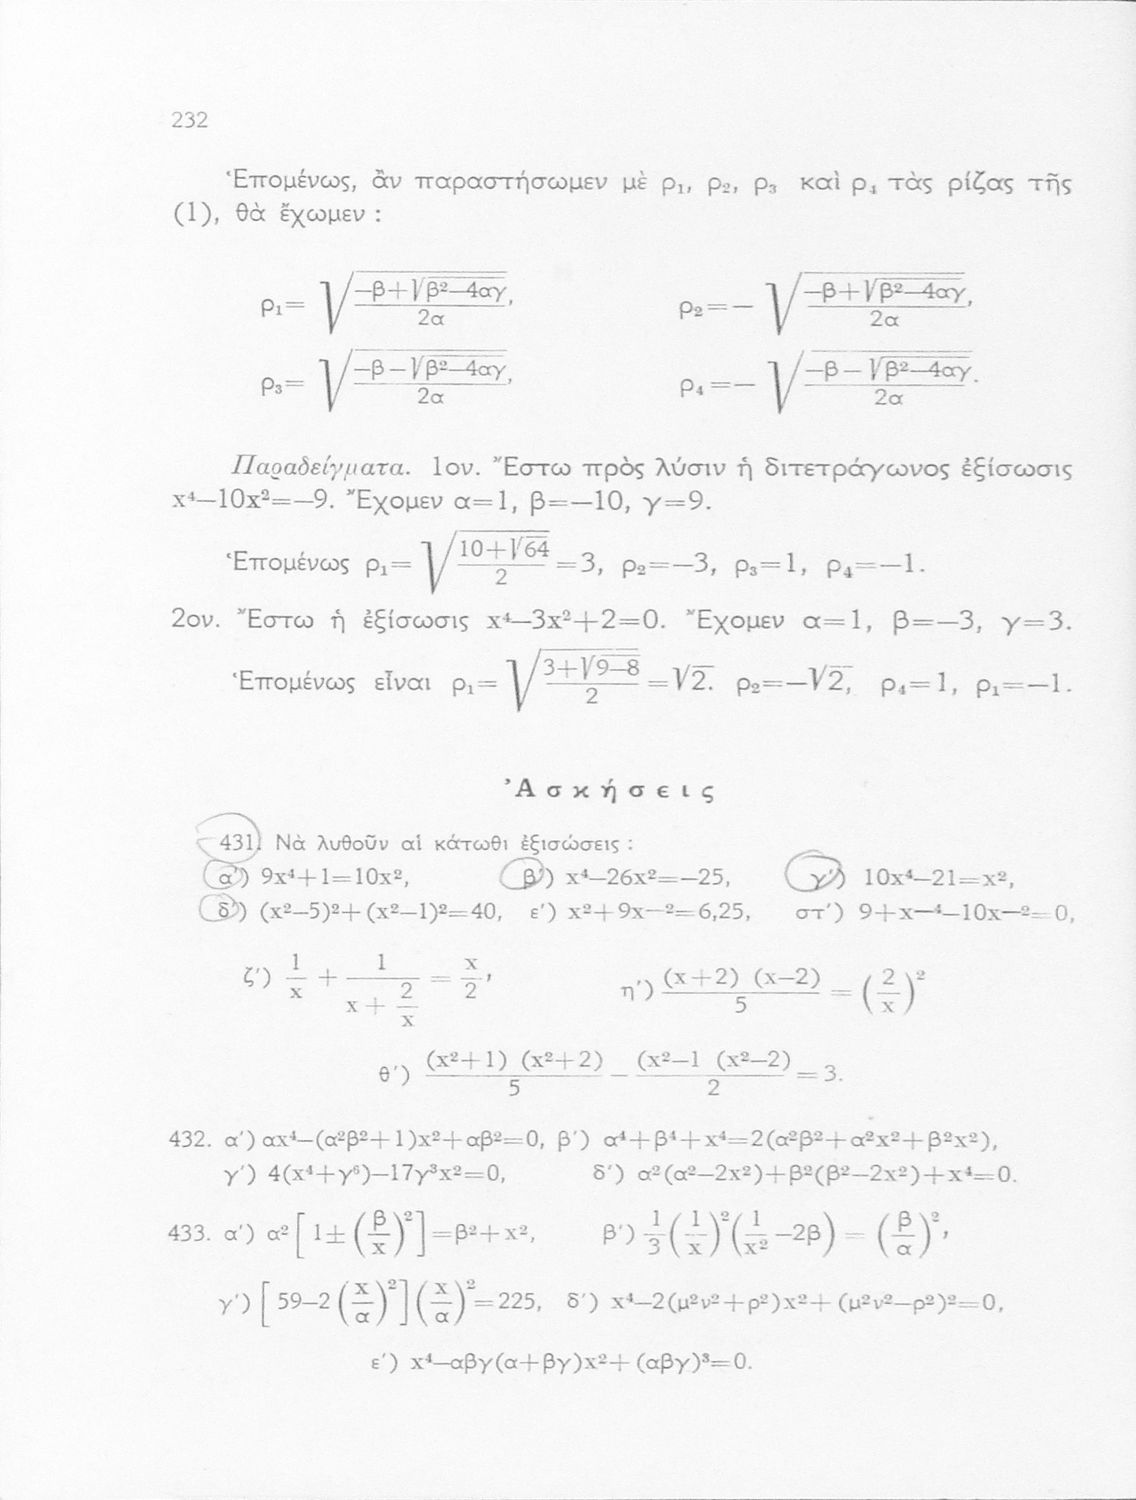 232
Ἑπομένως, ἂν παραστήσωμεν μὲ ρ₁, ρ₂, ρ₃ καὶ ρ₄ τὰς ρίζας τῆς
(1), θὰ ἔχωμεν :
ρ₁= √((–β+√(β²–4αγ))/2α), ρ₂=– √((–β+√(β²–4αγ))/2α),
ρ₃= √((–β–√(β²–4αγ))/2α), ρ₄=– √((–β–√(β²–4αγ))/2α).
Παραδείγματα. 1ον. Ἔστω πρὸς λύσιν ἡ διτετράγωνος ἐξίσωσις
x⁴–10x²=–9. Ἔχομεν α=1, β=–10, γ=9.
Ἑπομένως ρ₁= √((10+√64)/2) =3, ρ₂=–3, ρ₃=1, ρ₄=–1.
2ον. Ἔστω ἡ ἐξίσωσις x⁴–3x²+2=0. Ἔχομεν α=1, β=–3, γ=3.
Ἑπομένως εἶναι ρ₁= √((3+√(9–8))/2) =√2. ρ₂=–√2, ρ₄=1, ρ₁=–1.
Ἀσκήσεις
431. Νὰ λυθοῦν αἱ κάτωθι ἐξισώσεις :
α') 9x⁴+1=10x², β') x⁴–26x²=–25, γ') 10x⁴–21=x²,
δ') (x²–5)²+(x²–1)²=40, ε') x²+9x—²=6,25, στ') 9+x—⁴–10x—²=0,
ζ') 1/x + 1/(x + 2/x) = x/2, η') (x+2) (x–2)/5 = (2/x)²
θ') (x²+1) (x²+2)/5 – (x²–1 (x²–2)/2 = 3.
432. α') αx⁴–(α²β²+1)x²+αβ²=0, β') α⁴+β⁴+x⁴=2(α²β²+α²x²+β²x²),
γ') 4(x⁴+γ⁶)–17γ³x²=0, δ') α²(α²–2x²)+β²(β²–2x²)+x⁴=0.
433. α') α²[1±(β/x)²]=β²+x², β') 1/3(1/x)²(1/x²–2β) = (β/α)²,
γ') [59–2(x/α)²](x/α)²=225, δ') x⁴–2(μ²ν²+ρ²)x²+(μ²ν²–ρ²)²=0,
ε') x⁴–αβγ(α+βγ)x²+(αβγ)³=0.